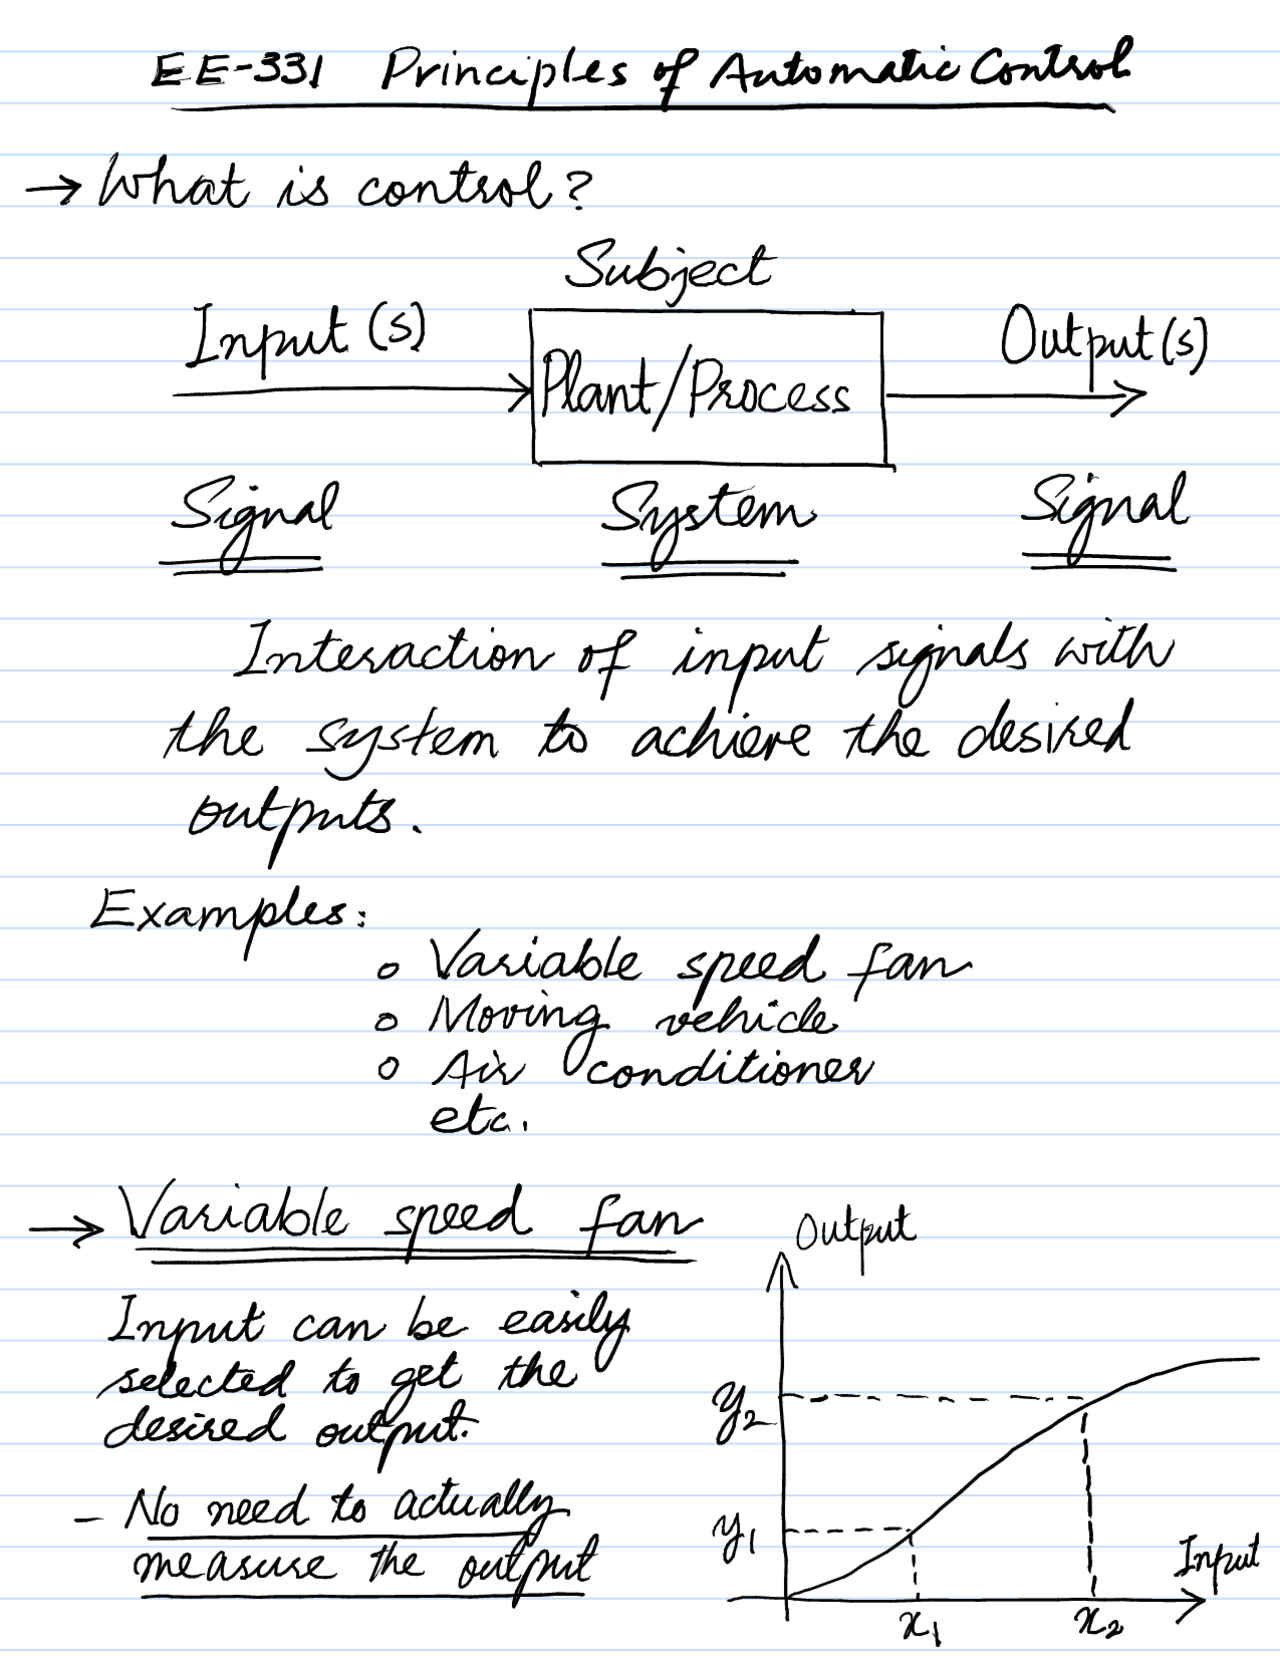 EE-331 Principles of Automatic Control
→ What is control?
Subject
Input (s)
Plant/Process
Output(s)
Signal
System
Signal
Interaction of input signals with
the system to achieve the desired
outputs.
Examples:
o Variable speed fan
o Moving vehicle
o Air conditioner
etc.
→ Variable speed fan
Input can be easily
selected to get the
desired output.
- No need to actually
measure the output
Output
y2
y1
Input
x1
x2